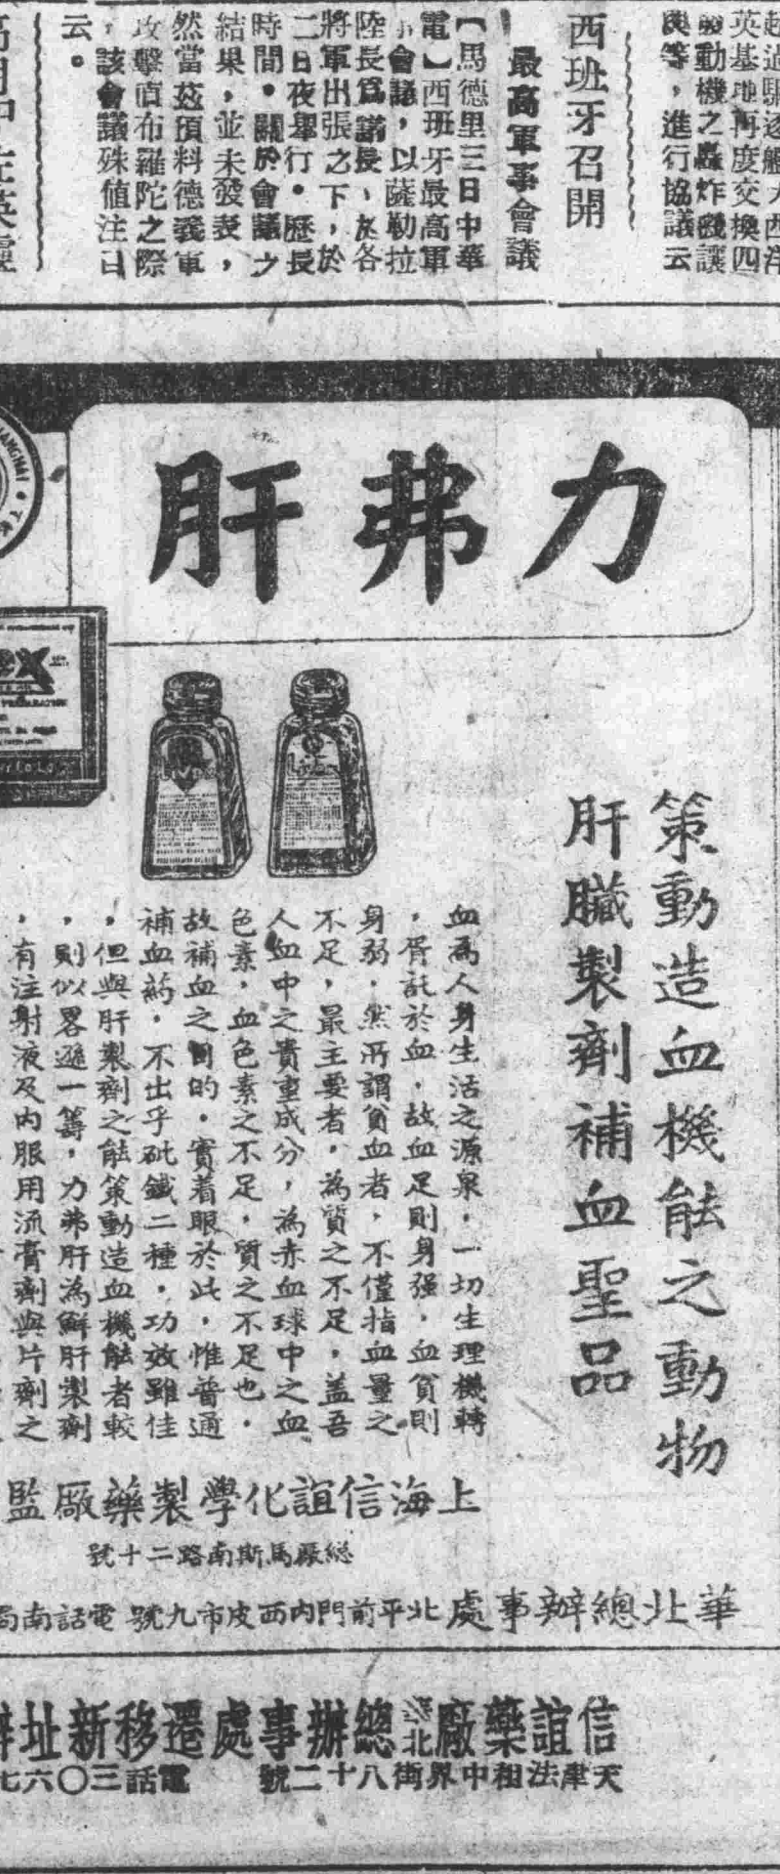 英基地再度交換四
發動機之轟炸機讓
與等，進行協議云
西班牙召開
最高軍事會議
【馬德里三日中華
電】西班牙最高軍
事會議，以薩勒拉
陸長爲議長、於各
將軍出張之下，於
二日夜舉行。歷長
時間。關於會議之
結果，並未發表，
然當茲預料德義軍
攻擊直布羅陀之際
，該會議殊值注目
云。
力弗肝
策動造血機能之動物
肝臟製劑補血聖品
血爲人身生活之源泉，一切生理機轉
，胥託於血，故血足則身強，血貧則
身弱，然所謂貧血者，不僅指血量之
不足，最主要者，為質之不足，蓋吾
人血中之貴重成分，為赤血球中之血
色素，血色素之不足，質之不足也，
故補血之目的，實着眼於此，惟普通
補血藥，不出乎砒鐵二種，功效雖佳
，但與肝製劑之能策動造血機能者較
，則似畧遜一籌，力弗肝為鮮肝製劑
，有注射液及內服用流膏劑與片劑之
上海信誼化學製藥廠監
總廠馬斯南路二十號
華北總辦事處 北平前門內西皮市九號 電話南局
信誼藥廠華北總辦事處遷移新址
天津法租中界街八十二號 電話三〇六七